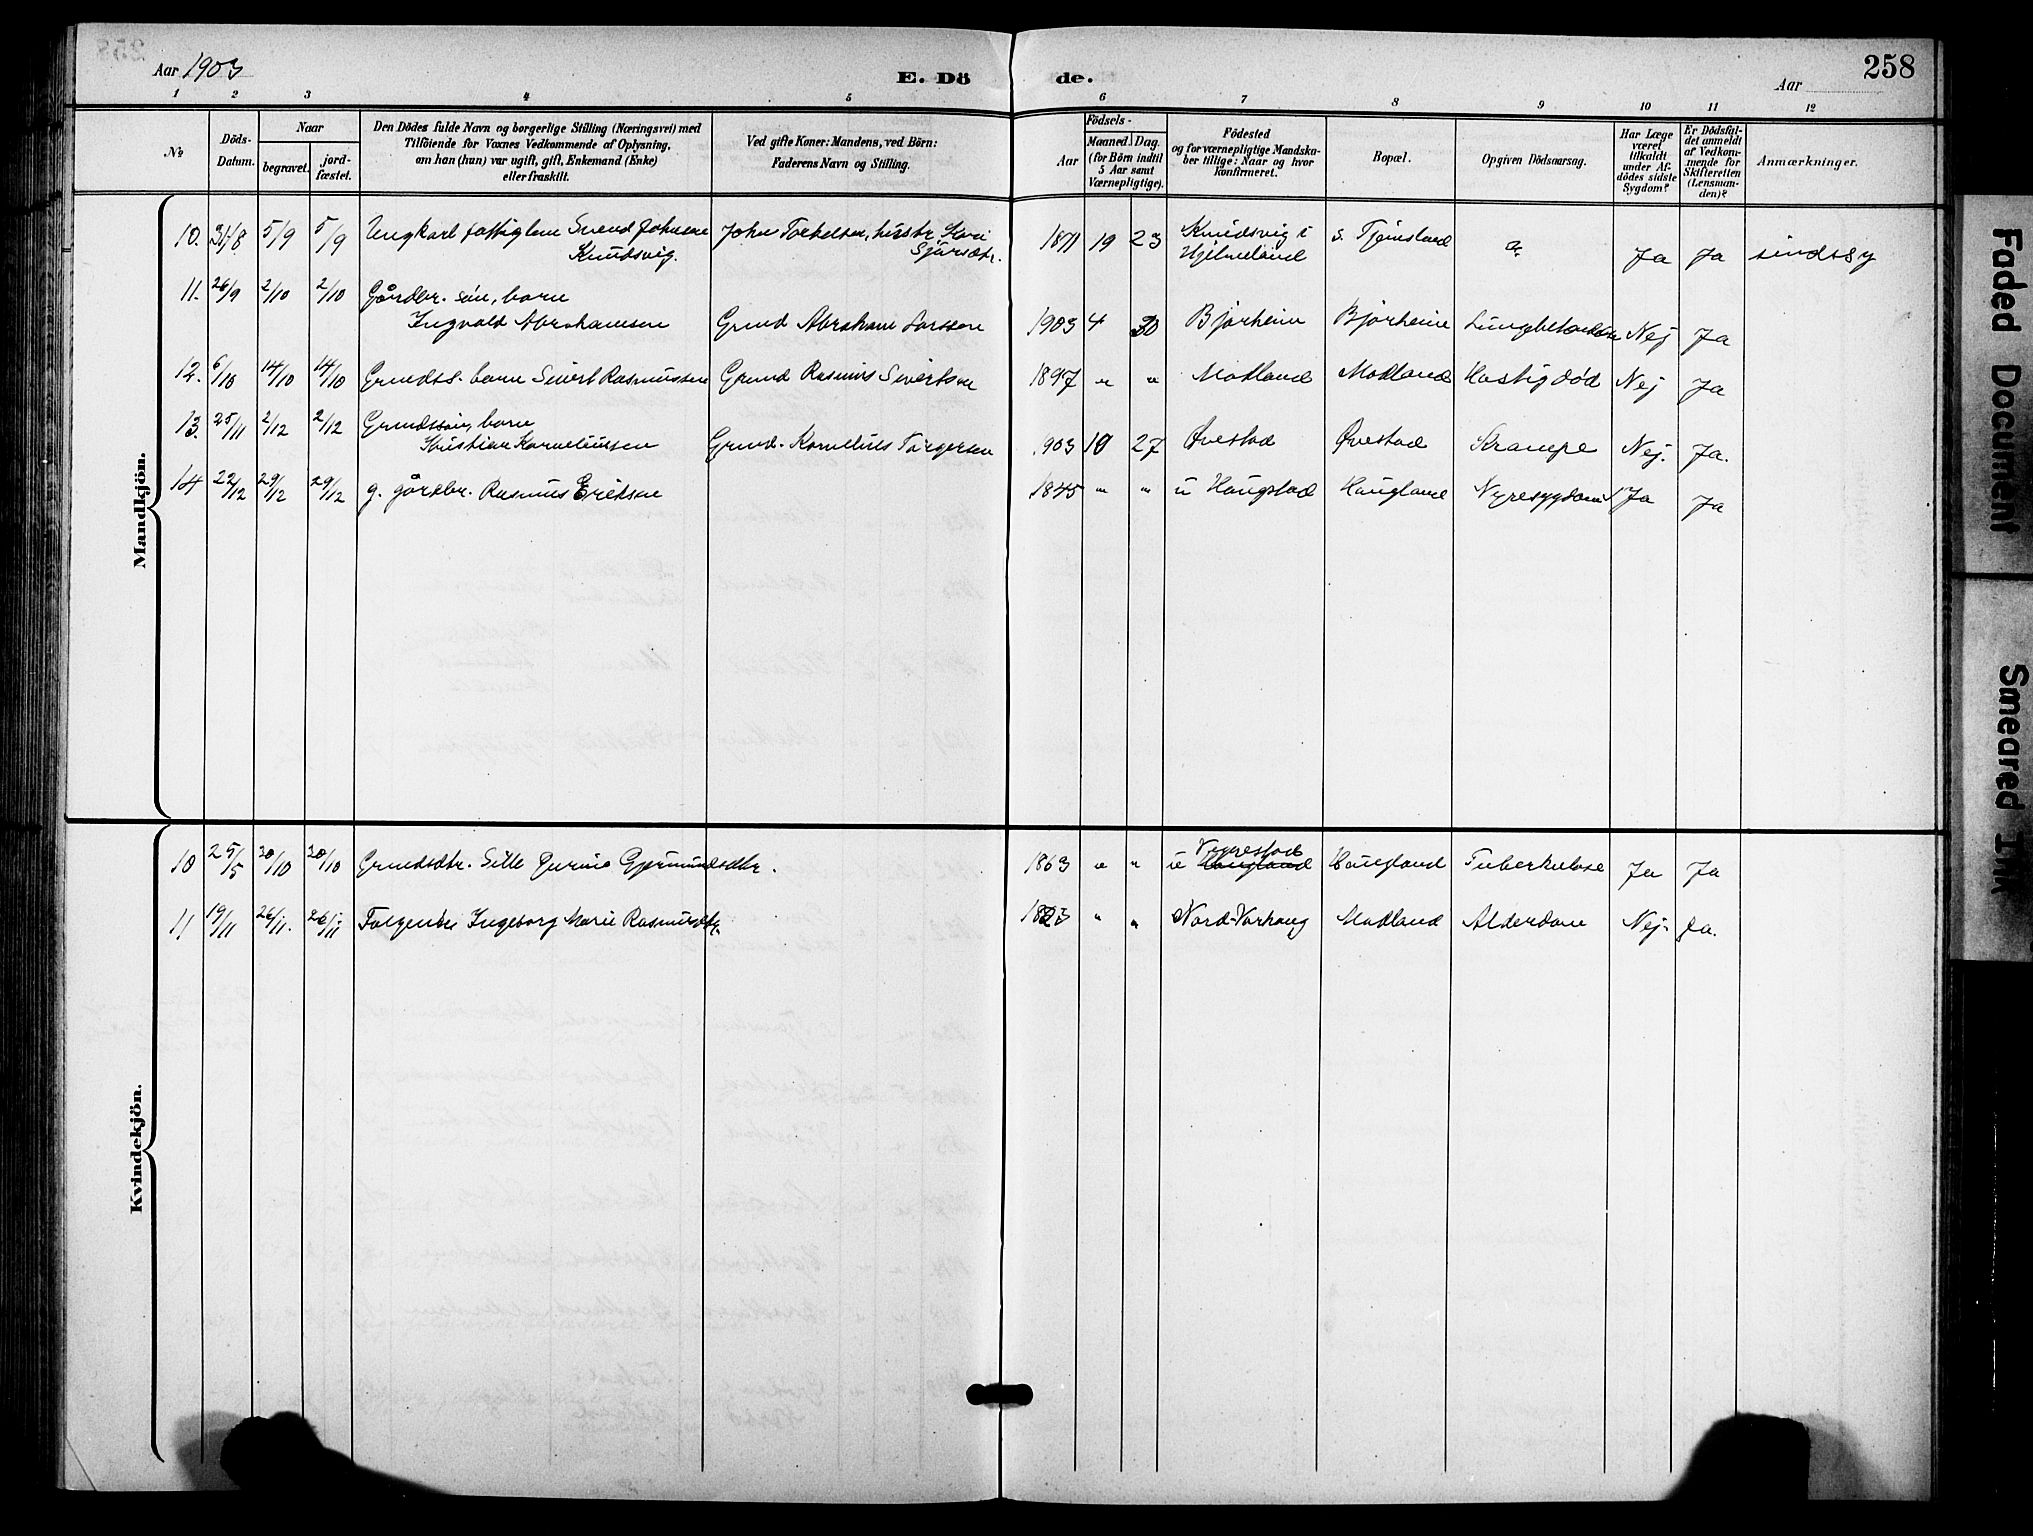 Aar 1903
E. Dö
de.
Aar
258
1 2 3 4 5 6 7 8 9 10 11 12
No
Döds-
Datum.
Naar
begravet.
jord-
fæstet.
Den Dödes fulde Navn og borgerlige Stilling (Næringsvei) med
Tilföiende for Voxnes Vedkommende af Oplysning,
om han (hun) var ugift, gift, Enkemand (Enke)
eller fraskilt.
Ved gifte Koner: Mandens, ved Börn:
Faderens Navn og Stilling.
Födsels-
Aar
Maaned. Dag.
(for Börn indtil
5 Aar samt
Værnepligtige).
Födested
og for værnepligtige Mandska-
ber tillige: Naar og hvor
konfirmeret.
Bopæl.
Opgiven Dödsaarsag.
Har Læge
været
tilkaldt
under Af-
dödes sidste
Sygdom?
Er Dödsfal-
det anmeldt
af Vedkom-
mende for
Skifteretten
(Lensman-
den)?
Anmærkninger.
Mandkjön.
10. 31/8 5/9 5/9 Ungkarl fattiglem Svend Johnsen
Knudsvig.
John Torkelsen, hustr. Kari
Sjursdtr.
1871 19 23 Knudsvig i
Hjelmeland
s. Tjemsland
Ja Ja sindssyg
11. 26/9 2/10 2/10 Gårdbr. søn, barn
Ingvald Abrahamsen Grmd Abraham Larssen 1903 4 30 Bjorheim Bjorheim Lungebetændelse Nej Ja
12. 6/10 14/10 14/10 Grmdss. barn Sivert Rasmussen Grmd Rasmus Sivertsen 1897 " " Modland Modland Hastig død Nej Ja
13. 25/11 2/12 2/12 Grmdssøn, barn
Kristian Korneliussen Grmd. Kornelius Torgersen 1903 10 27 Øvestad Øvestad Krampe Nej. Ja.
14 22/12 29/12 29/12 g. gårdbr. Rasmus Eriksen 1845 " " u Haugstad Haugland Nyresygdom Ja Ja
Kvindekjön.
10 25/5 30/10 30/10 Grmdsdtr. Sille Gurine Gjermundsdtr. 1863 " " u Haugland Haugland Tuberkulose Ja Ja
11 19/11 26/11. 26/11 Folgenke Ingeborg Marie Rasmusdtr. 1823 " " Nord-Varhaug Modland Alderdom Nej- Ja.
Faded Document
Smeared Ink